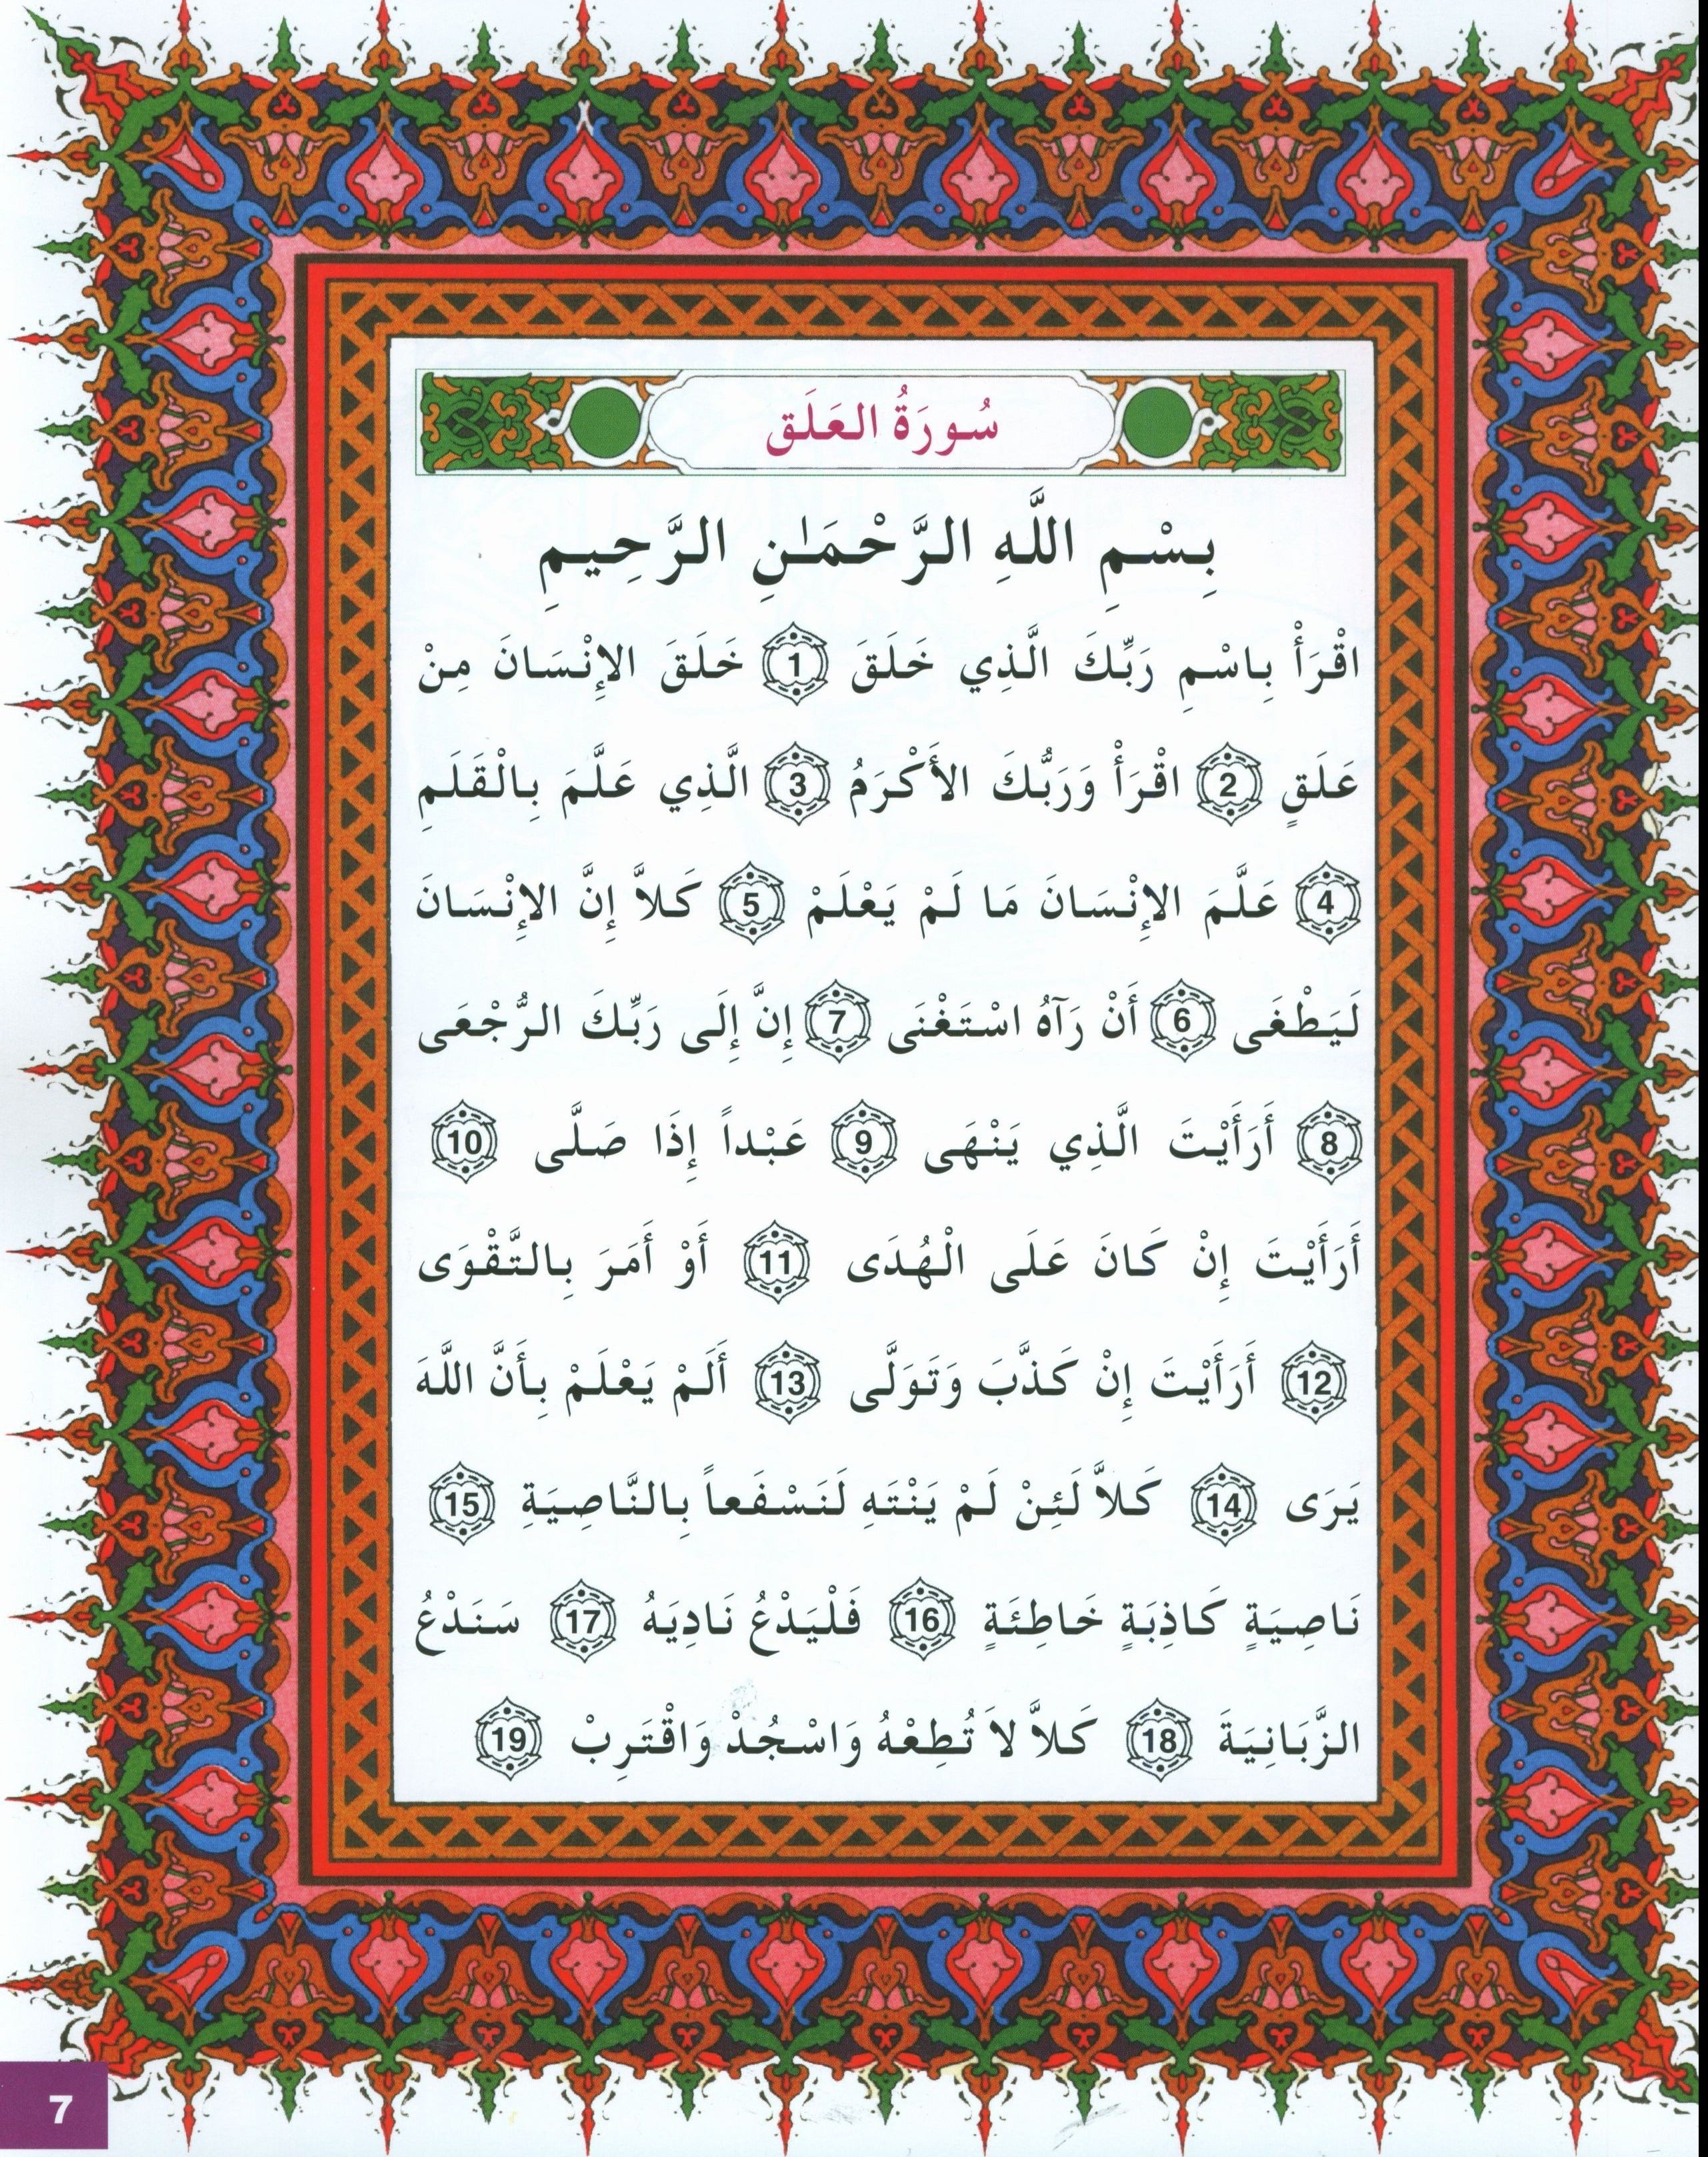 سُورَةُ العَلَق
بِسْمِ اللَّهِ الرَّحْمَٰنِ الرَّحِيمِ
اقْرَأْ بِاسْمِ رَبِّكَ الَّذِي خَلَقَ 1 خَلَقَ الإِنْسَانَ مِنْ
عَلَقٍ 2 اقْرَأْ وَرَبُّكَ الأَكْرَمُ 3 الَّذِي عَلَّمَ بِالْقَلَمِ
4 عَلَّمَ الإِنْسَانَ مَا لَمْ يَعْلَمْ 5 كَلاَّ إِنَّ الإِنْسَانَ
لَيَطْغَى 6 أَنْ رَآهُ اسْتَغْنَى 7 إِنَّ إِلَى رَبِّكَ الرُّجْعَى
8 أَرَأَيْتَ الَّذِي يَنْهَى 9 عَبْداً إِذَا صَلَّى 10
أَرَأَيْتَ إِنْ كَانَ عَلَى الْهُدَى 11 أَوْ أَمَرَ بِالتَّقْوَى
12 أَرَأَيْتَ إِنْ كَذَّبَ وَتَوَلَّى 13 أَلَمْ يَعْلَمْ بِأَنَّ اللَّهَ
يَرَى 14 كَلاَّ لَئِنْ لَمْ يَنْتَهِ لَنَسْفَعاً بِالنَّاصِيَةِ 15
نَاصِيَةٍ كَاذِبَةٍ خَاطِئَةٍ 16 فَلْيَدْعُ نَادِيَهُ 17 سَنَدْعُ
الزَّبَانِيَةَ 18 كَلاَّ لاَ تُطِعْهُ وَاسْجُدْ وَاقْتَرِبْ 19
7